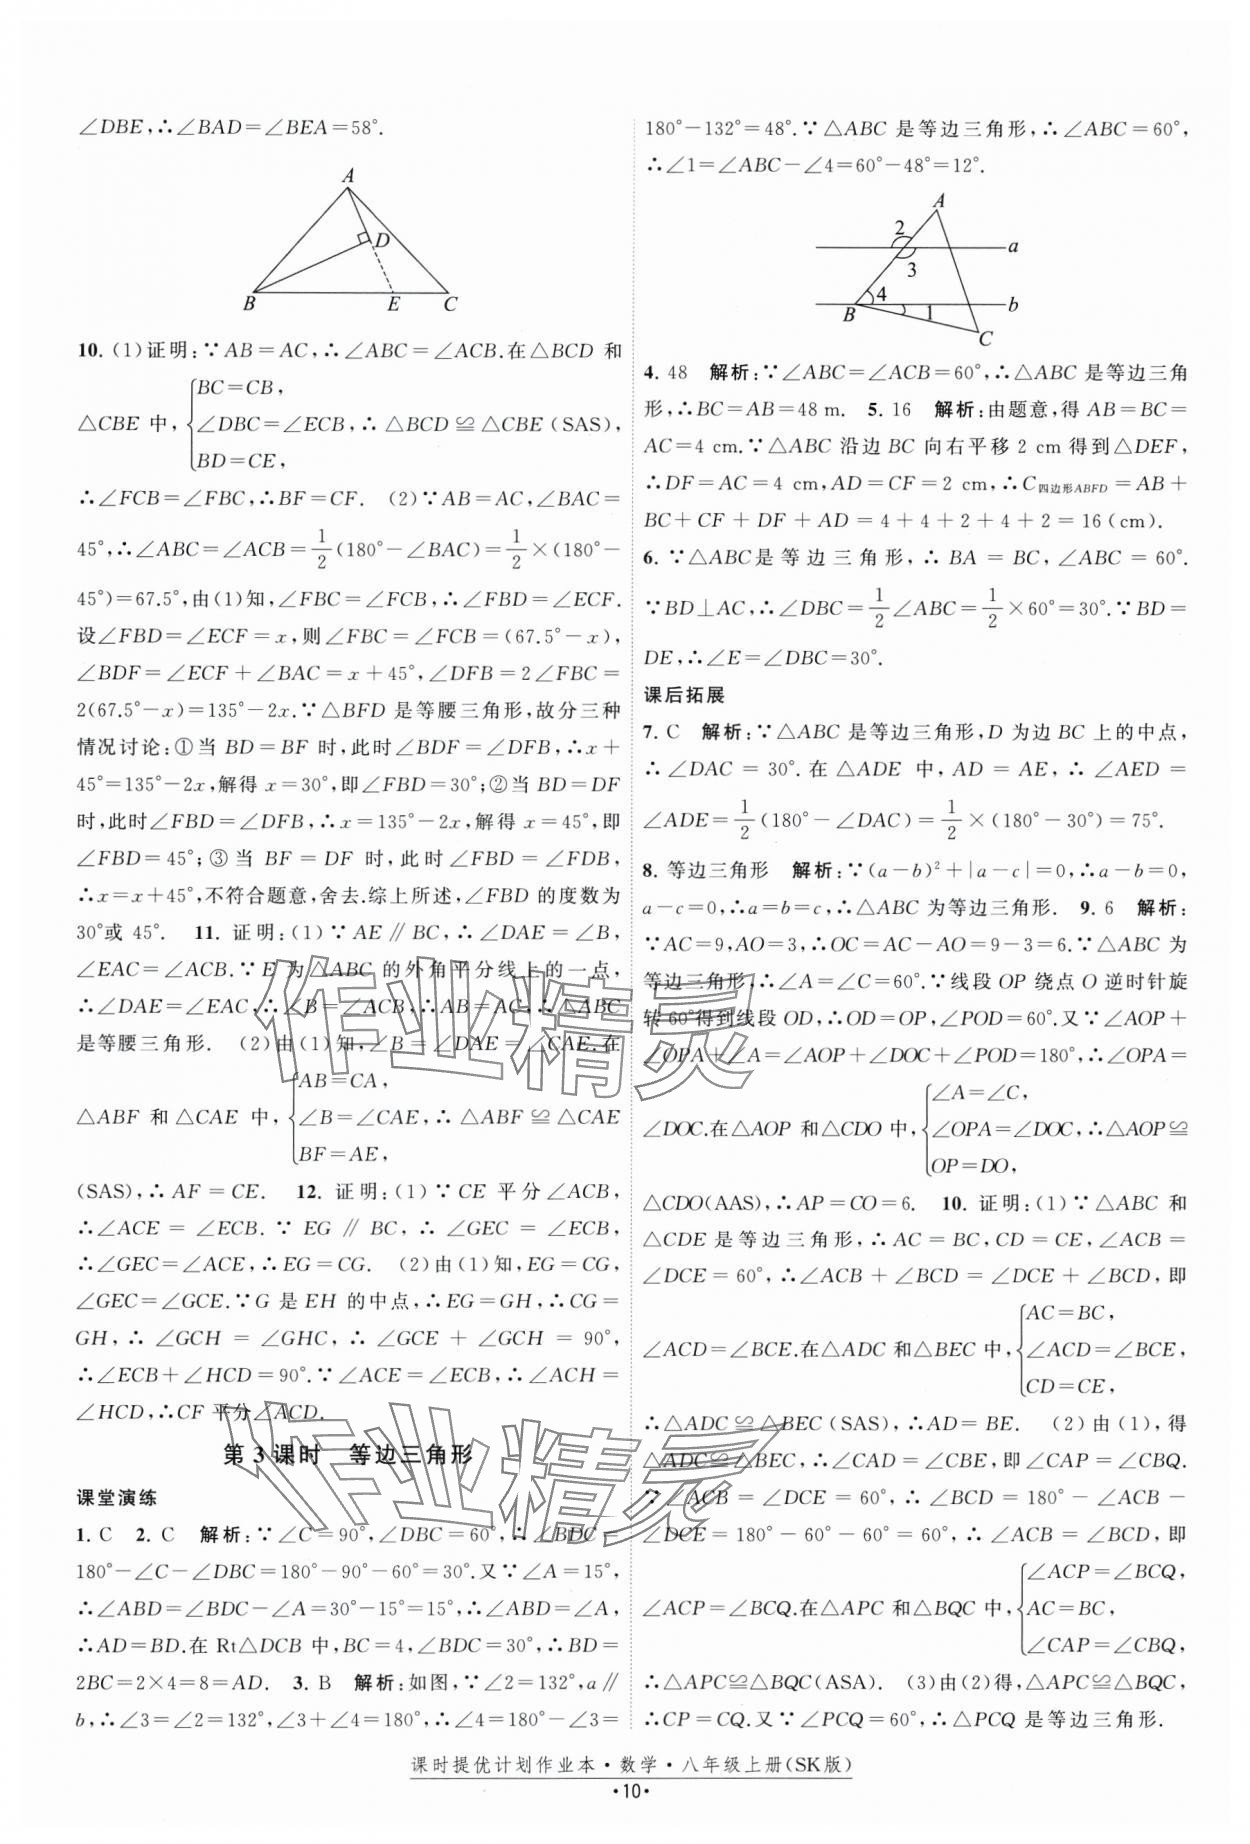 ∠DBE,∴∠BAD=∠BEA=58°.
A
D
B
E
C
10. (1)证明:∵AB=AC,∴∠ABC=∠ACB.在△BCD 和
BC=CB,
△CBE 中, ∠DBC=∠ECB,∴△BCD≌△CBE(SAS),
BD=CE,
∴∠FCB=∠FBC,∴BF=CF. (2)∵AB=AC,∠BAC=
45°,∴∠ABC=∠ACB=1/2(180°−∠BAC)=1/2×(180°−
45°)=67.5°,由(1)知,∠FBC=∠FCB,∴∠FBD=∠ECF.
设∠FBD=∠ECF=x,则∠FBC=∠FCB=(67.5°−x),
∠BDF=∠ECF+∠BAC=x+45°,∠DFB=2∠FBC=
2(67.5°−x)=135°−2x.∵△BFD 是等腰三角形,故分三种
情况讨论:①当 BD=BF 时,此时∠BDF=∠DFB,∴x+
45°=135°−2x,解得 x=30°,即∠FBD=30°;②当 BD=DF
时,此时∠FBD=∠DFB,∴x=135°−2x,解得 x=45°,即
∠FBD=45°;③当 BF=DF 时,此时∠FBD=∠FDB,
∴x=x+45°,不符合题意,舍去.综上所述,∠FBD 的度数为
30°或 45°. 11. 证明:(1)∵AE∥BC,∴∠DAE=∠B,
∠EAC=∠ACB.∵E 为△ABC 的外角平分线上的一点,
∴∠DAE=∠EAC,∴∠B=∠ACB,∴AB=AC,∴△ABC
是等腰三角形. (2)由(1)知,∠B=∠DAE=∠CAE.在
AB=CA,
△ABF 和△CAE 中, ∠B=∠CAE,∴△ABF≌△CAE
BF=AE,
(SAS),∴AF=CE. 12. 证明:(1)∵CE 平分∠ACB,
∴∠ACE=∠ECB.∵EG∥BC,∴∠GEC=∠ECB,
∴∠GEC=∠ACE,∴EG=CG. (2)由(1)知,EG=CG,
∠GEC=∠GCE.∵G 是 EH 的中点,∴EG=GH,∴CG=
GH,∴∠GCH=∠GHC,∴∠GCE+∠GCH=90°,
∴∠ECB+∠HCD=90°.∵∠ACE=∠ECB,∴∠ACH=
∠HCD,∴CF 平分∠ACD.
第 3 课时 等边三角形
课堂演练
1. C 2. C 解析:∵∠C=90°,∠DBC=60°,∴∠BDC=
180°−∠C−∠DBC=180°−90°−60°=30°.又∵∠A=15°,
∴∠ABD=∠BDC−∠A=30°−15°=15°,∴∠ABD=∠A,
∴AD=BD.在 Rt△DCB 中,BC=4,∠BDC=30°,∴BD=
2BC=2×4=8=AD. 3. B 解析:如图,∵∠2=132°,a∥
b,∴∠3=∠2=132°,∠3+∠4=180°,∴∠4=180°−∠3=
180°−132°=48°.∵△ABC 是等边三角形,∴∠ABC=60°,
∴∠1=∠ABC−∠4=60°−48°=12°.
A
2
a
3
4
b
B
1
C
4. 48 解析:∵∠ABC=∠ACB=60°,∴△ABC 是等边三角
形,∴BC=AB=48 m. 5. 16 解析:由题意,得 AB=BC=
AC=4 cm.∵△ABC 沿边 BC 向右平移 2 cm 得到△DEF,
∴DF=AC=4 cm,AD=CF=2 cm,∴C四边形ABFD=AB+
BC+CF+DF+AD=4+4+2+4+2=16(cm).
6. ∵△ABC是等边三角形,∴BA=BC,∠ABC=60°.
∵BD⊥AC,∴∠DBC=1/2∠ABC=1/2×60°=30°.∵BD=
DE,∴∠E=∠DBC=30°.
课后拓展
7. C 解析:∵△ABC 是等边三角形,D 为边 BC 上的中点,
∴∠DAC=30°.在△ADE 中,AD=AE,∴∠AED=
∠ADE=1/2(180°−∠DAC)=1/2×(180°−30°)=75°.
8. 等边三角形 解析:∵(a−b)²+|a−c|=0,∴a−b=0,
a−c=0,∴a=b=c,∴△ABC 为等边三角形. 9. 6 解析:
∵AC=9,AO=3,∴OC=AC−AO=9−3=6.∵△ABC 为
等边三角形,∴∠A=∠C=60°.∵线段 OP 绕点 O 逆时针旋
转 60°得到线段 OD,∴OD=OP,∠POD=60°.又∵∠AOP+
∠OPA+∠A=∠AOP+∠DOC+∠POD=180°,∴∠OPA=
∠A=∠C,
∠DOC.在△AOP 和△CDO 中, ∠OPA=∠DOC,∴△AOP≌
OP=DO,
△CDO(AAS),∴AP=CO=6. 10. 证明:(1)∵△ABC 和
△CDE 是等边三角形,∴AC=BC,CD=CE,∠ACB=
∠DCE=60°,∴∠ACB+∠BCD=∠DCE+∠BCD,即
AC=BC,
∠ACD=∠BCE.在△ADC 和△BEC 中, ∠ACD=∠BCE,
CD=CE,
∴△ADC≌△BEC(SAS),∴AD=BE. (2)由(1),得
△ADC≌△BEC,∴∠CAD=∠CBE,即∠CAP=∠CBQ.
∵∠ACB=∠DCE=60°,∴∠BCD=180°−∠ACB−
∠DCE=180°−60°−60°=60°,∴∠ACB=∠BCD,即
∠ACP=∠BCQ,
∠ACP=∠BCQ.在△APC 和△BQC 中, AC=BC,
∠CAP=∠CBQ,
∴△APC≌△BQC(ASA). (3)由(2)得,△APC≌△BQC,
∴CP=CQ.又∵∠PCQ=60°,∴△PCQ 是等边三角形.
作业精灵
作业精灵
课时提优计划作业本·数学·八年级上册(SK版)
·10·